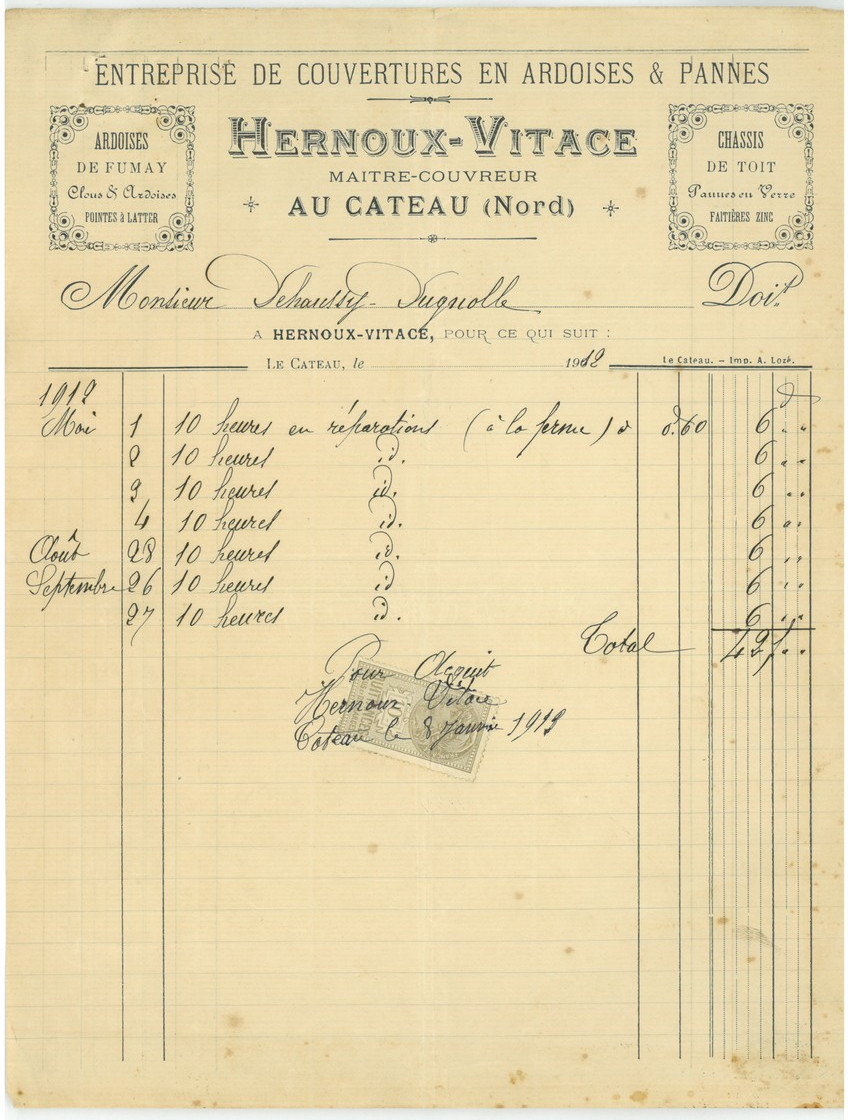 ENTREPRISE DE COUVERTURES EN ARDOISES & PANNES
ARDOISES
DE FUMAY
Clous & Ardoises
POINTES à LATTER
HERNOUX-VITACE
MAITRE-COUVREUR
AU CATEAU (Nord)
CHASSIS
DE TOIT
Pannes en Verre
FAITIÈRES ZINC
Monsieur Dehaussy-Dugnolle Doit
A HERNOUX-VITACE, POUR CE QUI SUIT :
LE CATEAU, le 1912
Le Cateau. – Imp. A. Lozé.
1912
Mai 1 10 heures en réparations (à la ferme) à 0.60 6 " "
2 10 heures id. 6 " "
3 10 heures id. 6 " "
4 10 heures id. 6 " "
Août 28 10 heures id. 6 " "
Septembre 26 10 heures id 6 " "
27 10 heures id. 6 " "
Total 42, " "
Pour Acquit
Hernoux-Vitace
Cateau le 8 Janvier 1913
QUITTANCES
10